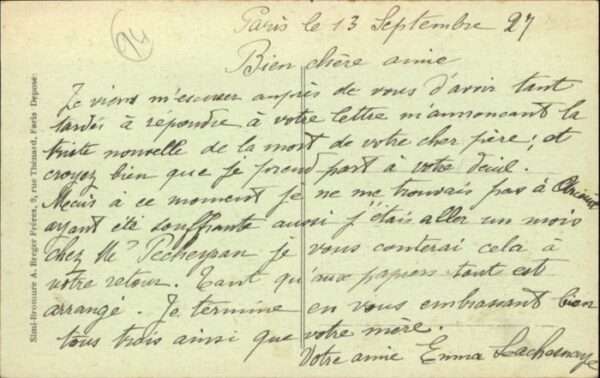 94
Paris le 13 Septembre 27
Bien chère amie
Je viens m'excuser auprès de vous d'avoir tant
tardés à repondre à votre lettre m'annoncant la
triste nouvelle de la mort de votre cher père; et
croyez bien que je prend part à votre deuil.
Mais à ce moment je ne me trouvais pas à
ayant été souffrante aussi j'étais aller un mois
chez Me Pecheyran je vous conterai cela à
votre retour. Tant qu'aux papiers tout est
arrangé. Je termine en vous embrassant bien
tous trois ainsi que votre mère.
Votre amie Emma Lachasnaye
Simi-Bromure A. Breger Frères, 9, rue Thénard, Paris Déposé